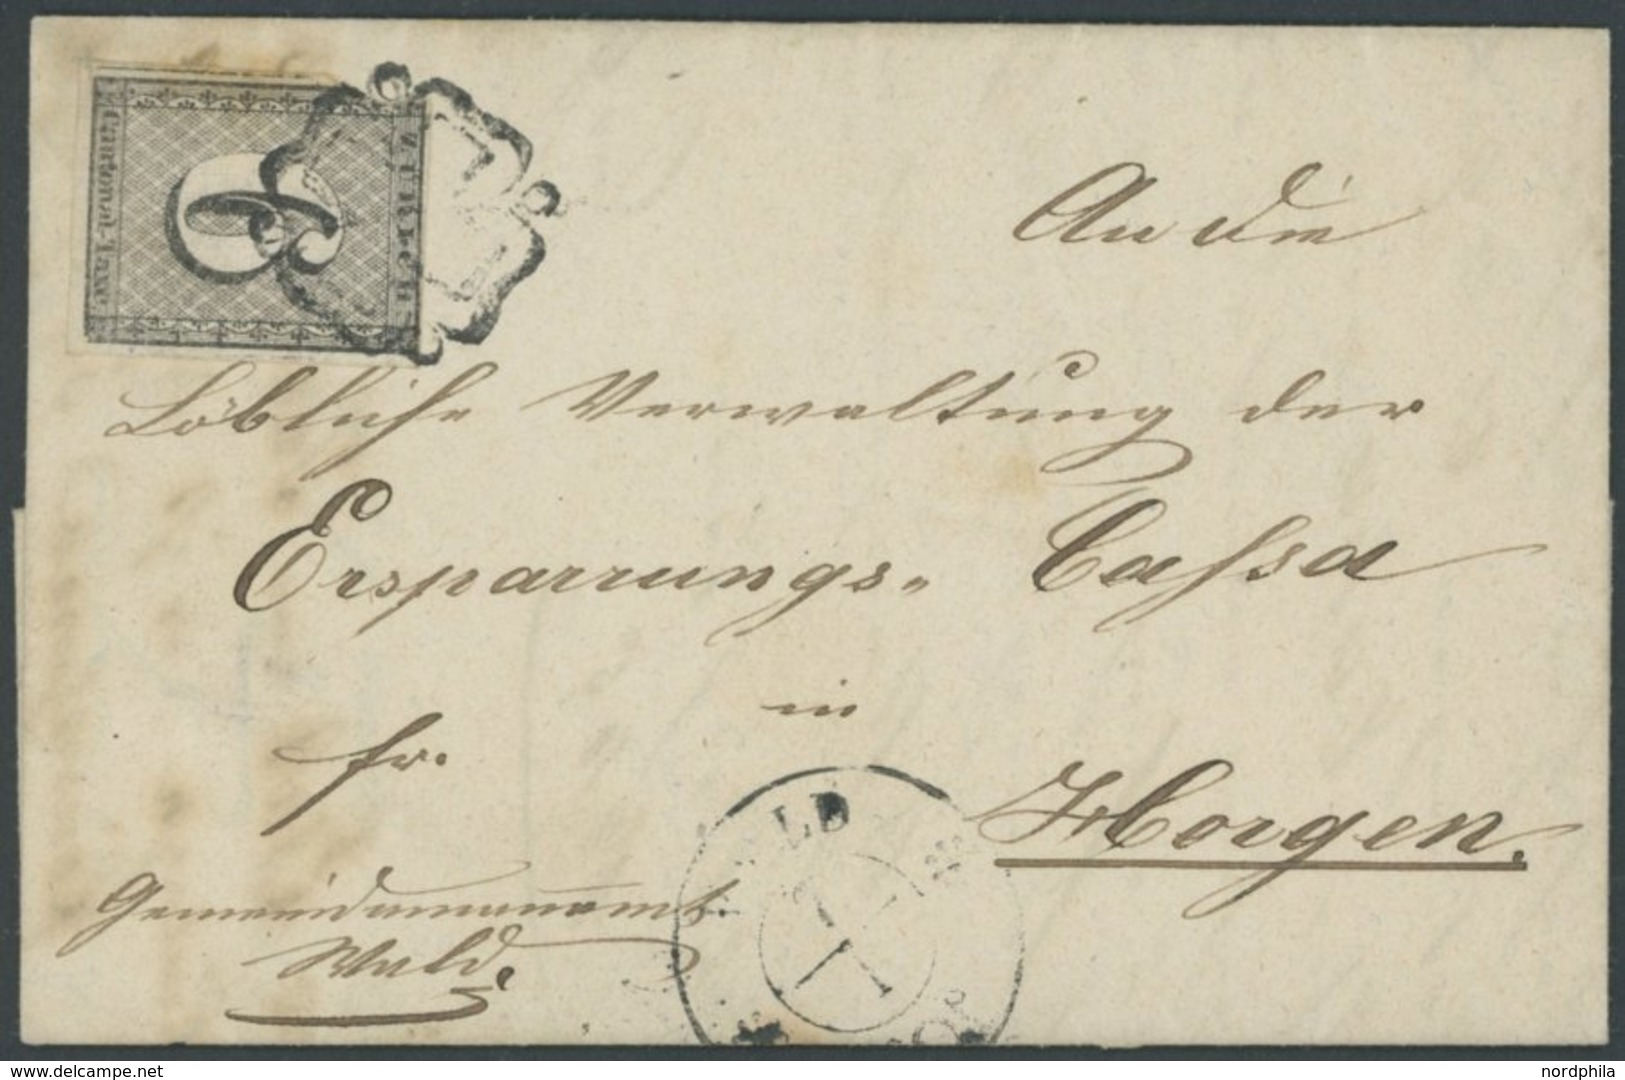 ZÜRICH
6
Cantonal-Taxe
An die
Löbliche Verwaltung der
Ersparrungs-Cassa
in
fr.
Horgen.
Gemeindamannamt
Wald.
delcampe.net
nordphila